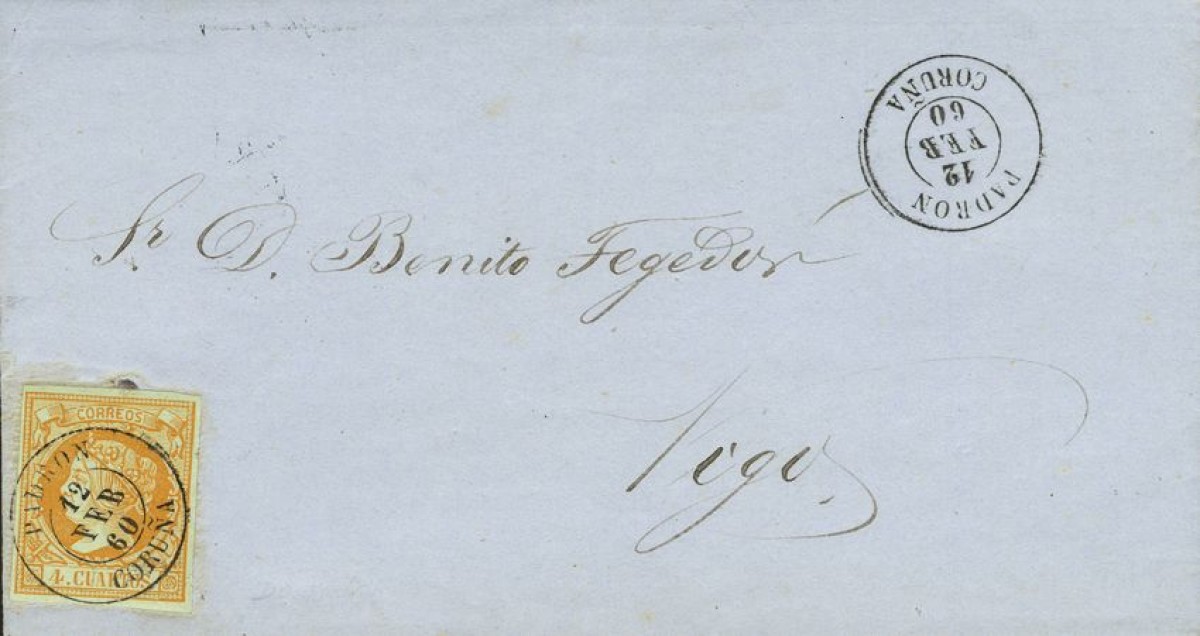 PADRON
12
FEB
60
CORUÑA
Sr. D. Benito Fegedor
Vigo.
CORREOS
PADRON
12
FEB
60
CORUÑA
4. CUARTOS